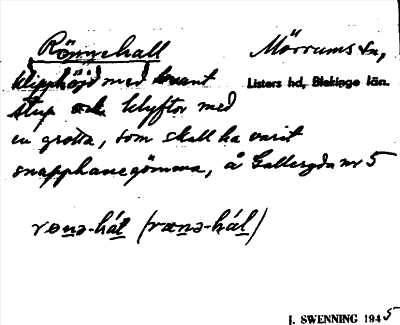 Rönnehall Mörrums sn,
klipphöjd med brant Listers hd, Blekinge län.
stup och klyftor med
en grotta, som skall ha varit
snapphanegömma, å Gallergda nr 5
rønə-hál (rœnə-hál)
J. SWENNING 1945